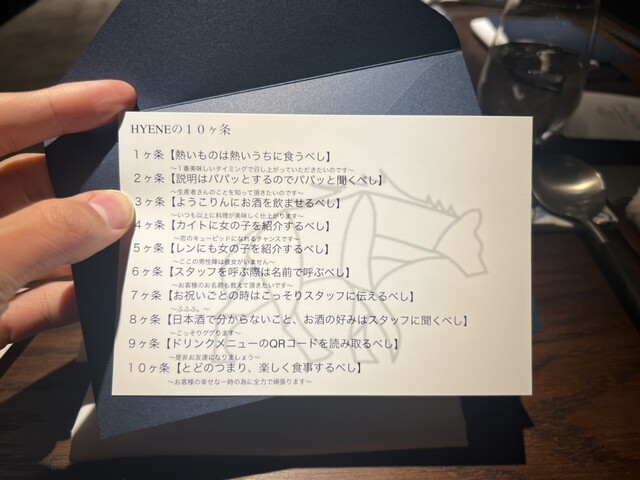 HYENEの１０ヶ条
１ヶ条【熱いものは熱いうちに食うべし】
〜１番美味しいタイミングで召し上がっていただきたいのです〜
２ヶ条【説明はパパッとするのでパパッと聞くべし】
〜生産者さんのことを知って頂きたいのです〜
３ヶ条【ようこりんにお酒を飲ませるべし】
〜いつも以上に料理が美味しく仕上がります〜
４ヶ条【カイトに女の子を紹介するべし】
〜恋のキューピッドになれるチャンスです〜
５ヶ条【レンにも女の子を紹介するべし】
〜ここの男性陣は彼女がいません〜
６ヶ条【スタッフを呼ぶ際は名前で呼ぶべし】
〜お客様のお名前も教えて頂きたいです〜
７ヶ条【お祝いごとの時はこっそりスタッフに伝えるべし】
〜ふふふ。〜
８ヶ条【日本酒で分からないこと、お酒の好みはスタッフに聞くべし】
〜こっそりググります〜
９ヶ条【ドリンクメニューのQRコードを読み取るべし】
〜是非お友達になりましょう〜
１０ヶ条【とどのつまり、楽しく食事するべし】
〜お客様の幸せな一時の為に全力で頑張ります〜